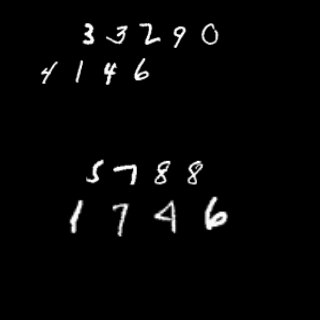 33290
4146
5788
1746